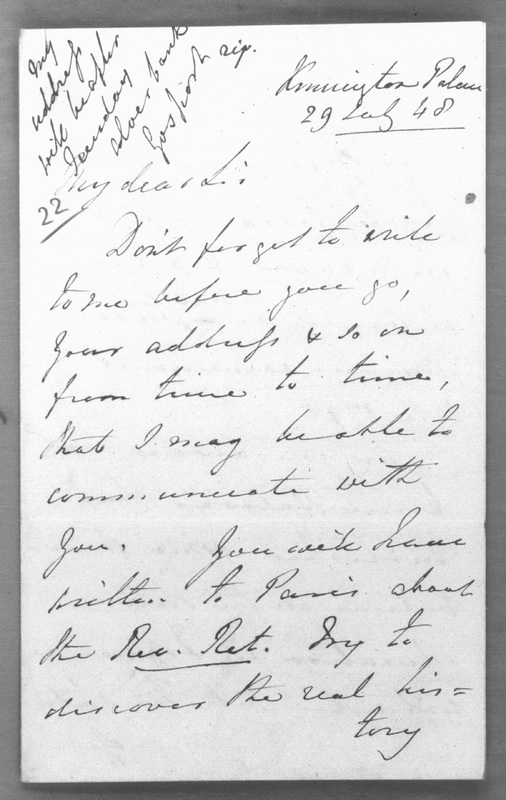 My
address
will be after
Tuesday
Alverbank
Gosport
Kensington Palace
29 July 48
22
My dear Sir
Don't forget to write
to me before you go,
your address & so on
from time to time,
that I may be able to
communicate with
you. You will have
written to Paris about
the Rev. Ret. Try to
discover the real his=
tory